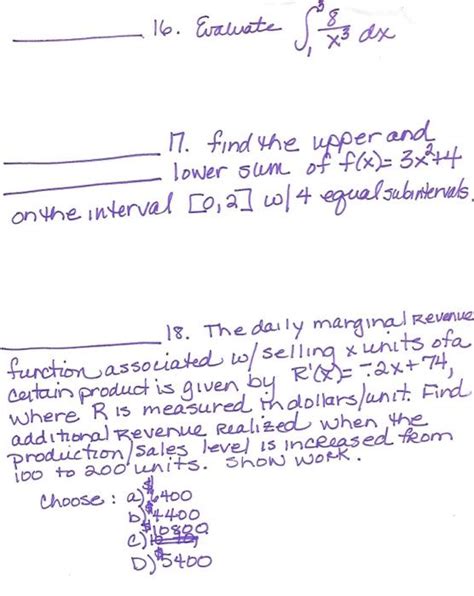 16. Evaluate ∫₁³ 8/x³ dx
17. find the upper and
lower sum of f(x)= 3x²+4
on the interval [0,2] w/ 4 equal subintervals.
18. The daily marginal Revenue
function associated w/ selling x units of a
certain product is given by R'(x)= -.2x+74,
where R is measured in dollars/unit. Find
additional Revenue Realized when the
production/sales level is increased from
100 to 200 units. Show work.
Choose: a) $6400
b) $4400
$10800
c)
D) $5400